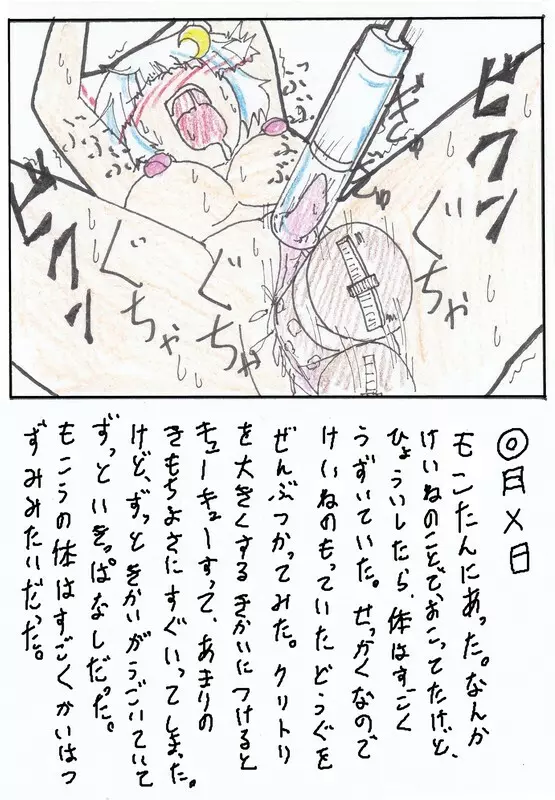 ◎月×日
もこたんにあった。なんか
けいねのことで、おこってたけど、
ひょういしたら、体はすごく
うずいていた。せっかくなので
けいねのもっていたどうぐを
ぜんぶつかってみた。クリトリ
を大きくするきかいにつけると
キューキューすって、あまりの
きもちよさにすぐいってしまった。
けど、ずっときかいがうごいていて
ずっといきっぱなしだった。
もこうの体はすごくかいはつ
ずみみたいだった。
ビクン
ビクン
ぐちゃ
ぐちゃ
ぐちゃ